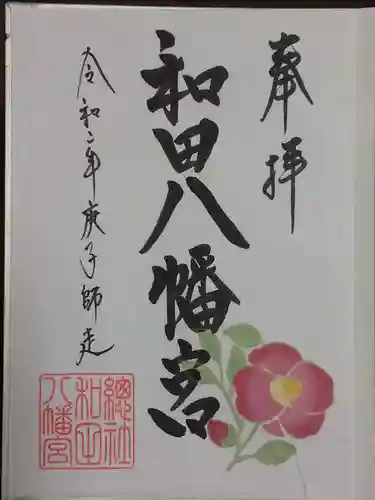 奉拝
和田八幡宮
令和二年庚子師走
總社
和田
八幡宮